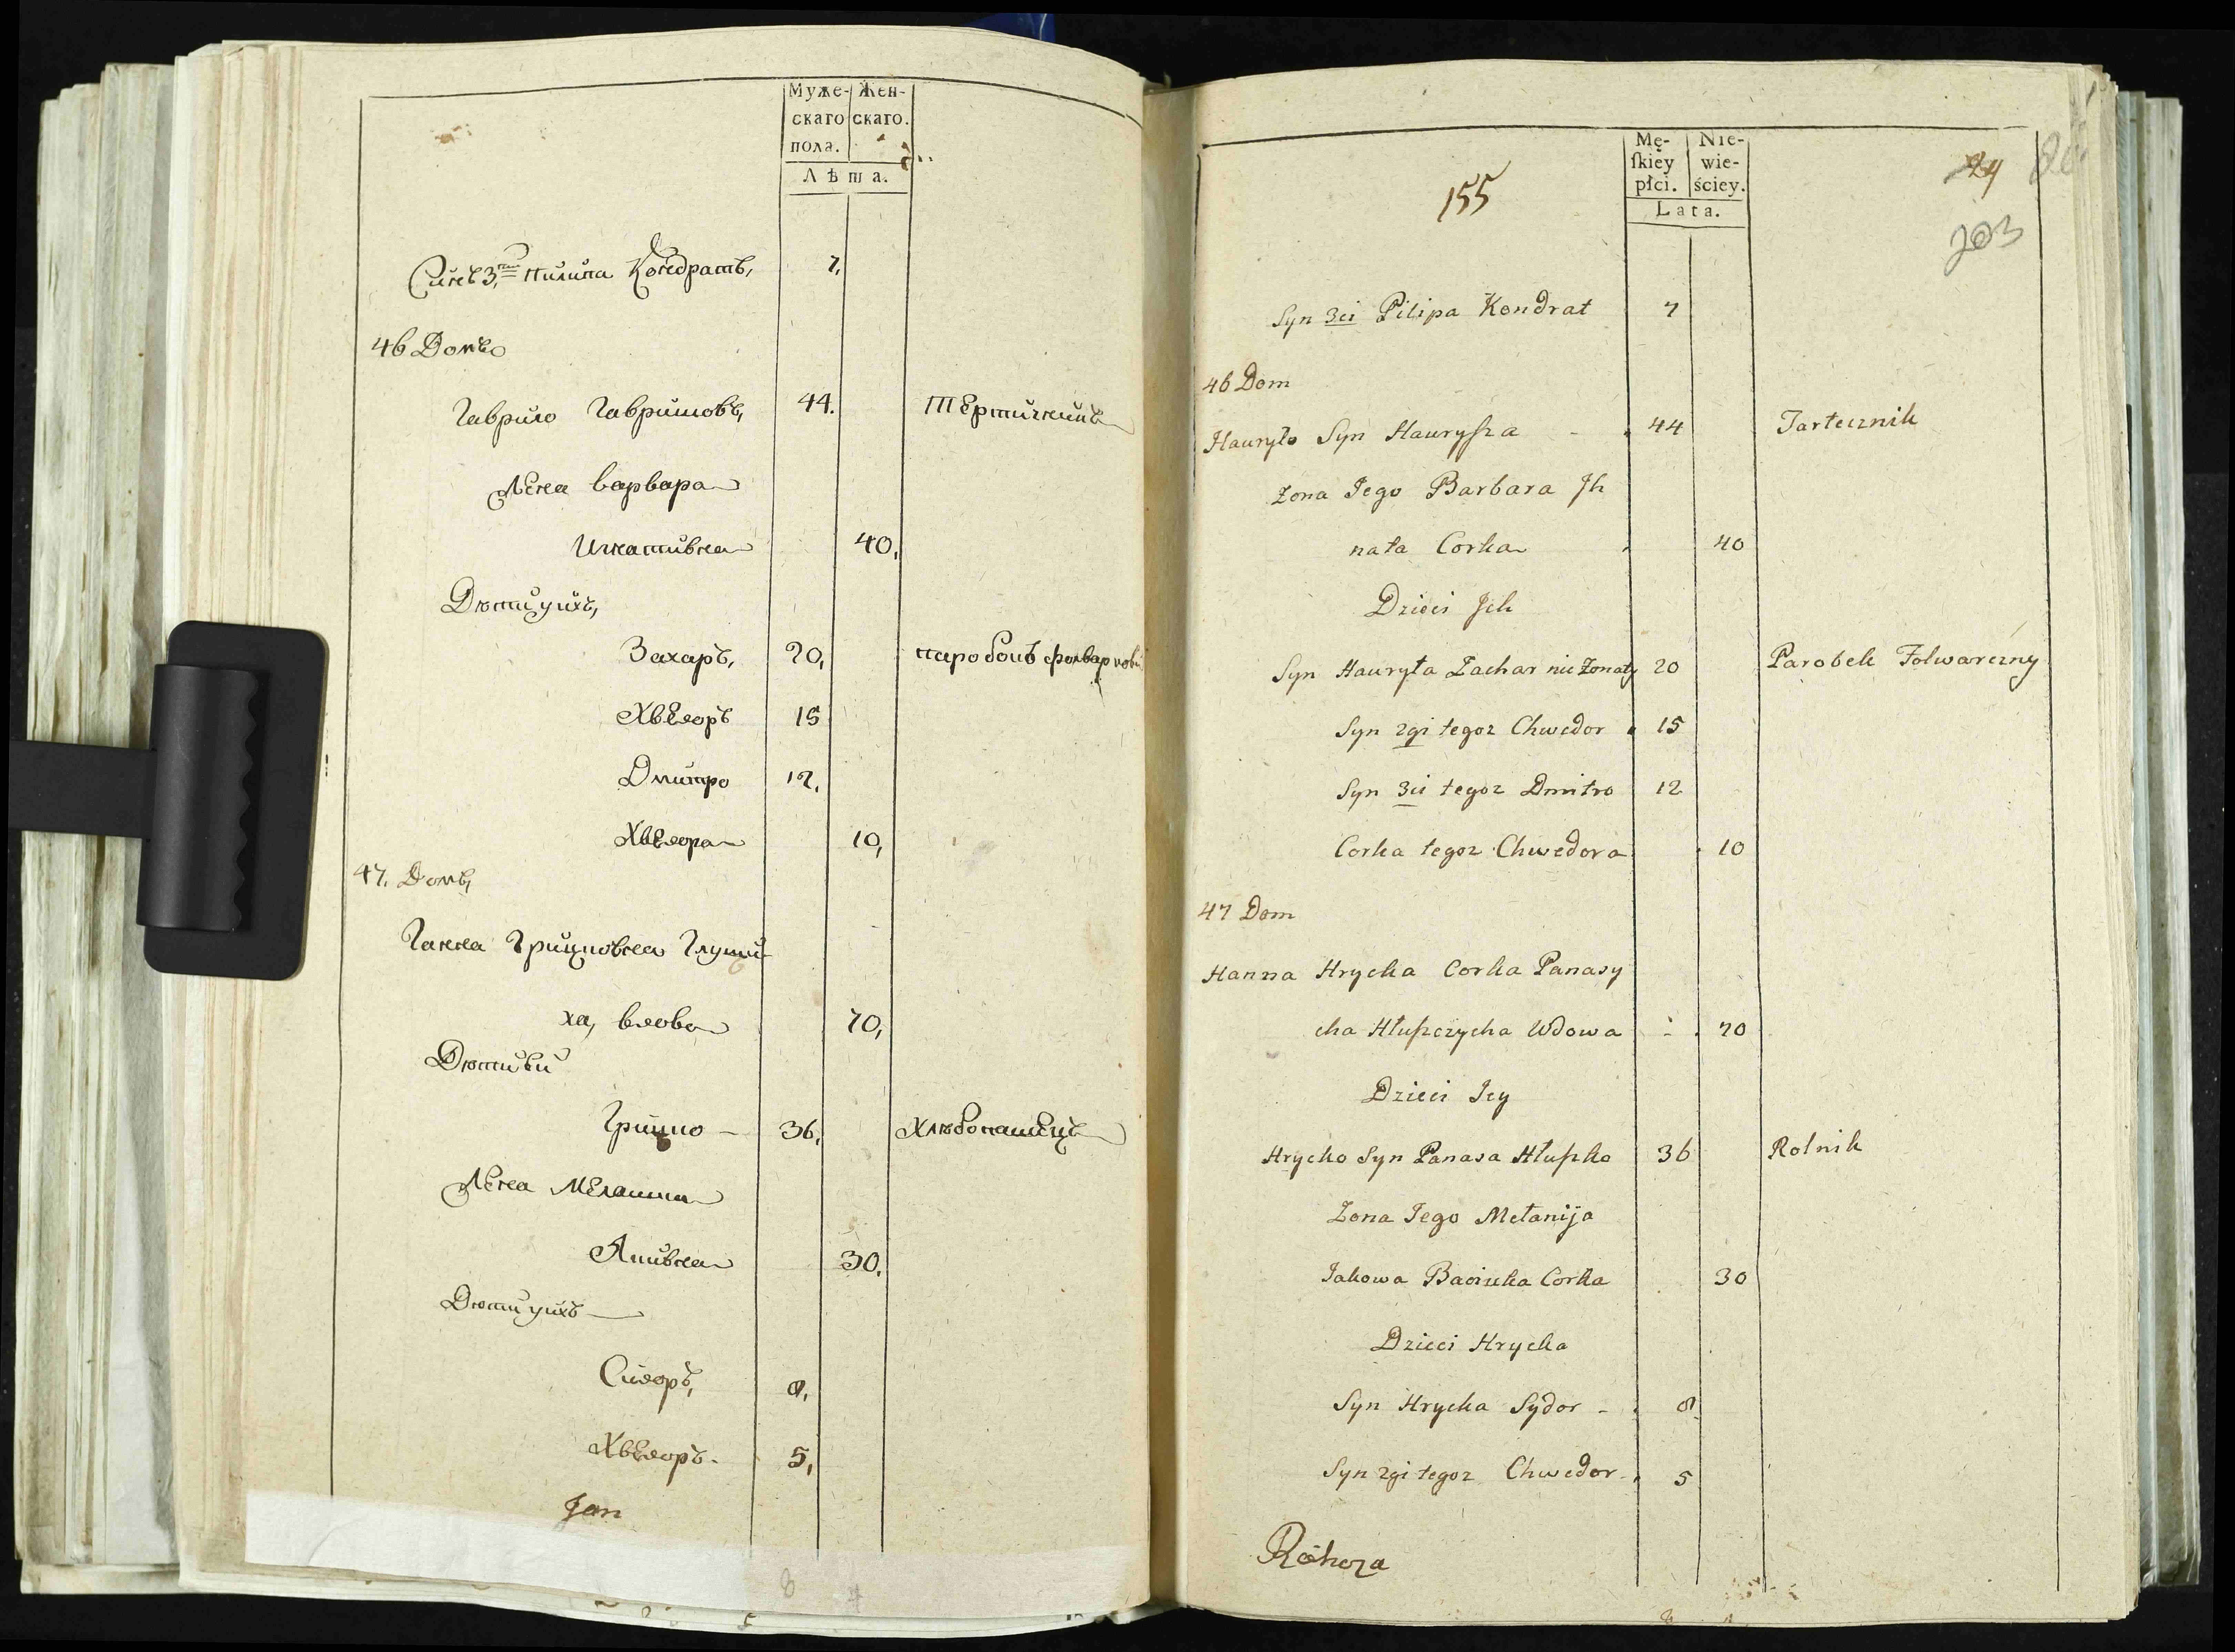 Муже- Жен-
скаго скаго.
пола.
Лѣта.
Синъ 3.тий пилипа Кондратъ, 7,
46 Домъ
Гаврило Гавришовъ, 44. Тертичникъ
Жена варвара
Игнативна 40,
Дѣти ихъ,
Захаръ, 20, паробокъ фолваркови
Хведоръ 15
Дмитро 12,
Хведора 10,
47. Домъ,
Ганна Грицковна Глуши-
ха, вдова 70,
Дѣти ей
Грицко - 36, Хлѣбопашецъ
Жена Мелашка
Яковна 30,
Дѣти ихъ
Сидоръ, 8,
Хведоръ. 5,
Jan
Mę- Nie-
ſkiey wie-
płci. ściey.
Lata.
155
24
203
Syn 3ci Pilipa Kondrat 7
46 Dom
Hauryło Syn Hauryſza - 44 Tartecznik
Zona Jego Barbara Jh
nata Corka 40
Dzieci Jch
Syn Hauryła Zachar nie Zonaty 20 Parobek Folwarczny
Syn 2gi tegoz Chwedor 15
Syn 3ci tegoz Dmitro 12
Corka tegoz Chwedora 10
47 Dom
Hanna Hrycka Corka Panasy
cha Hłuſzczycha Wdowa 70
Dzieci Jey
Hrycko Syn Panasa Hłuſzko 36 Rolnik
Zona Jego Mełanija
Jakowa Corka 30
Dzieci Hrycka
Syn Hrycka Sydor - 8
Syn 2gi tegoz Chwedor 5
Rohoza